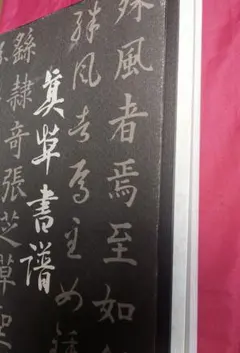 殊風者焉至如
殊風者焉至如鍾
眞草書譜
繇隸奇張芝草聖